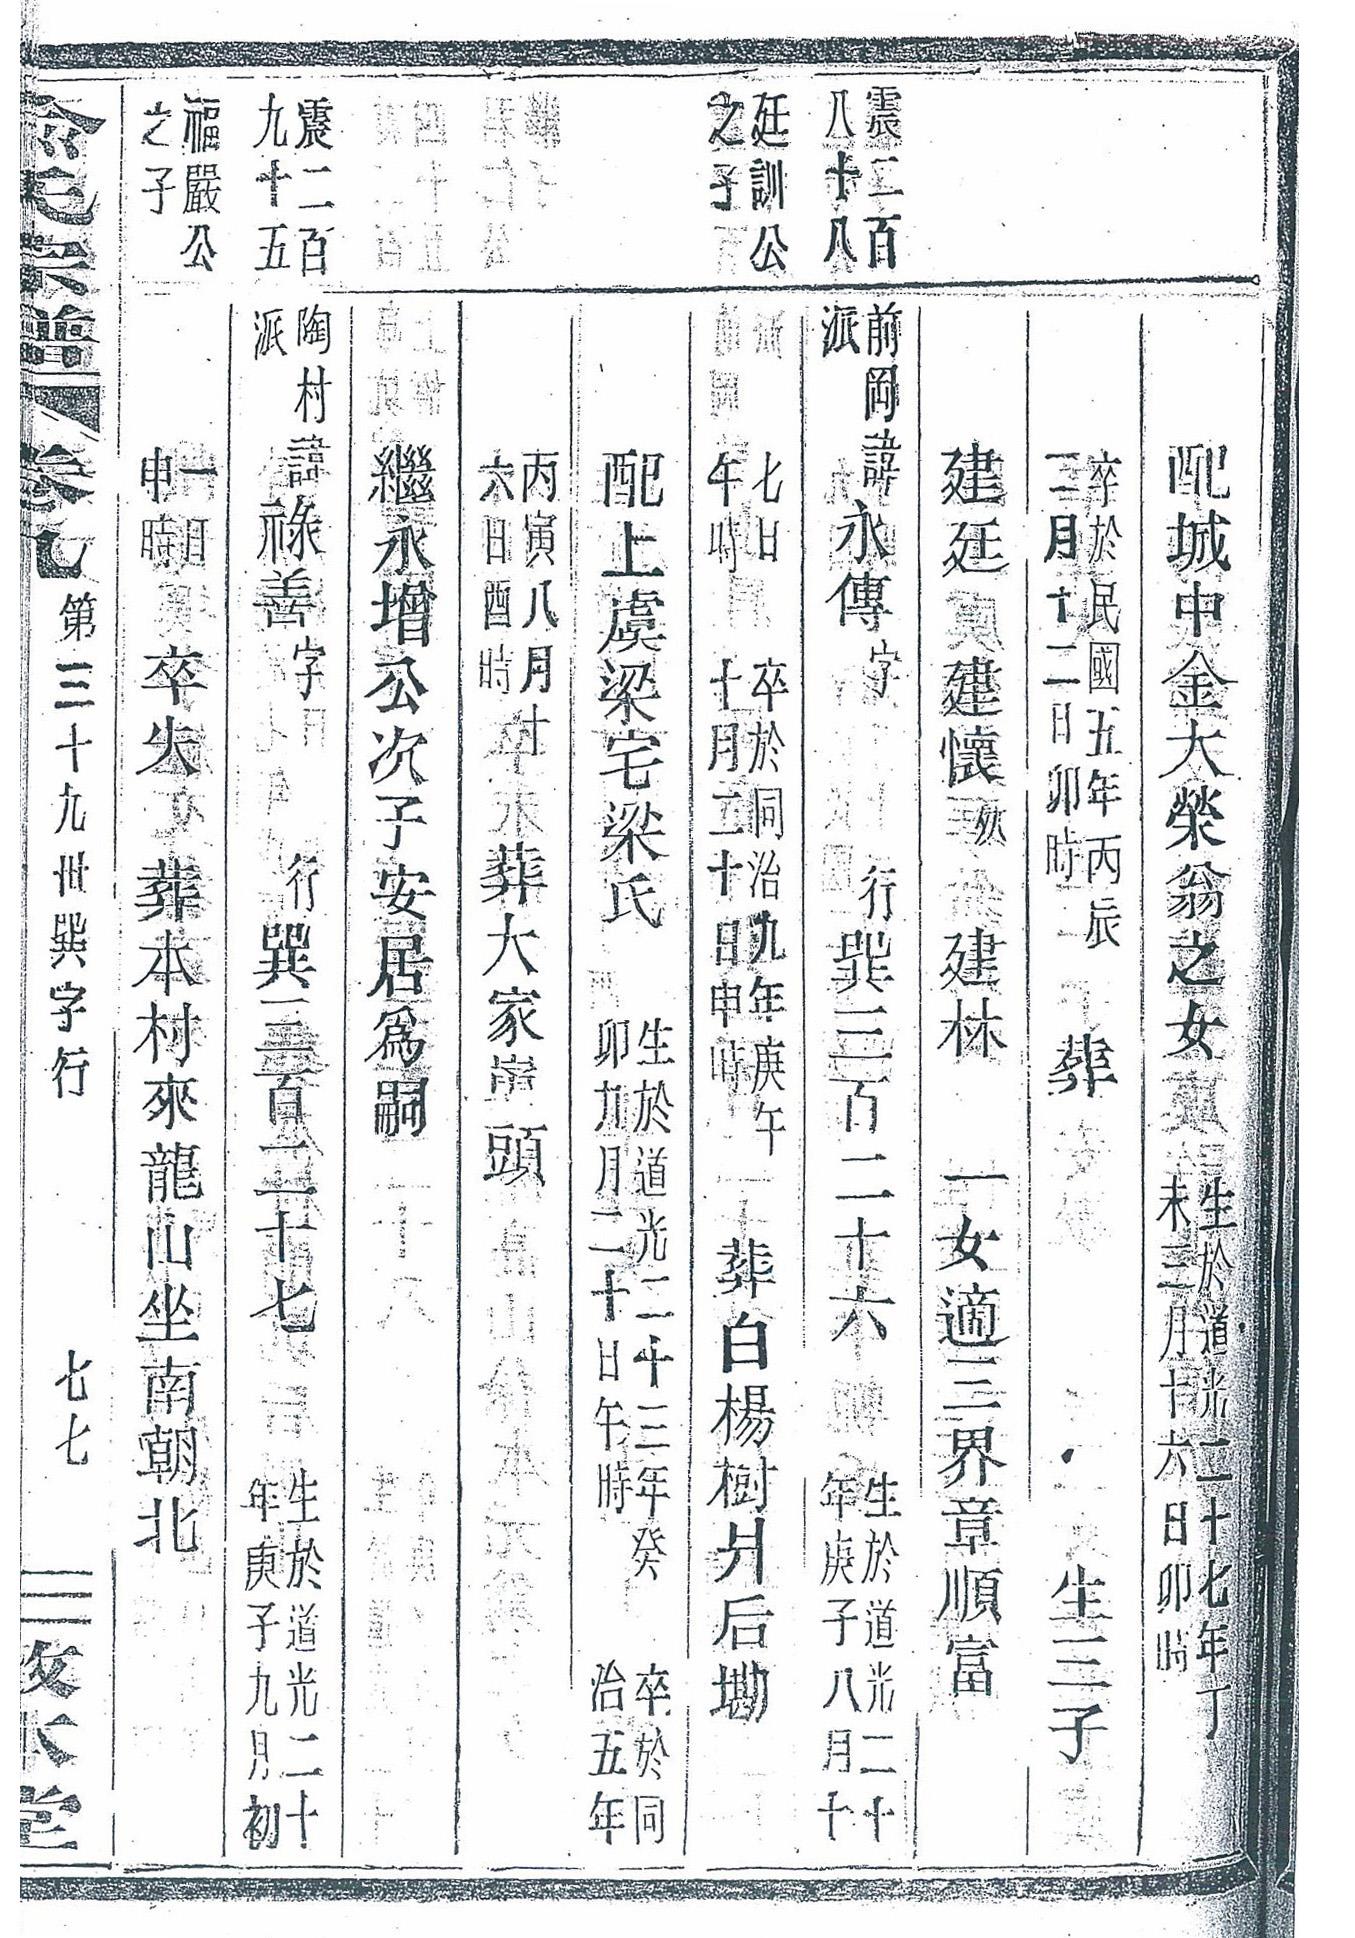 配城中金大榮翁之女 生於道光二十七年丁未三月十六日卯時
卒於民國五年丙辰三月十二日卯時 葬 生三子
建廷 建懷 建林 一女適三界章順富
震二百八十八 前岡派 諱永傳 字 行巽三百二十六 生於道光二十年庚子八月十
廷訓公之子 七日午時 卒於同治九年庚午十月二十日申時 葬白楊樹爿后墈
配上虞梁宅梁氏 生於道光二十三年癸卯九月二十日午時 卒於同治五年
丙寅八月廿六日酉時 葬大家 頭
繼永增公次子安居爲嗣
震二百九十五 陶村派 諱祿善 字 行巽三百二十七 生於道光二十年庚子九月初
福嚴公之子 一日申時 卒失 葬本村來龍山坐南朝北
宗譜 卷九 第三十九卅巽字行 七七 本堂